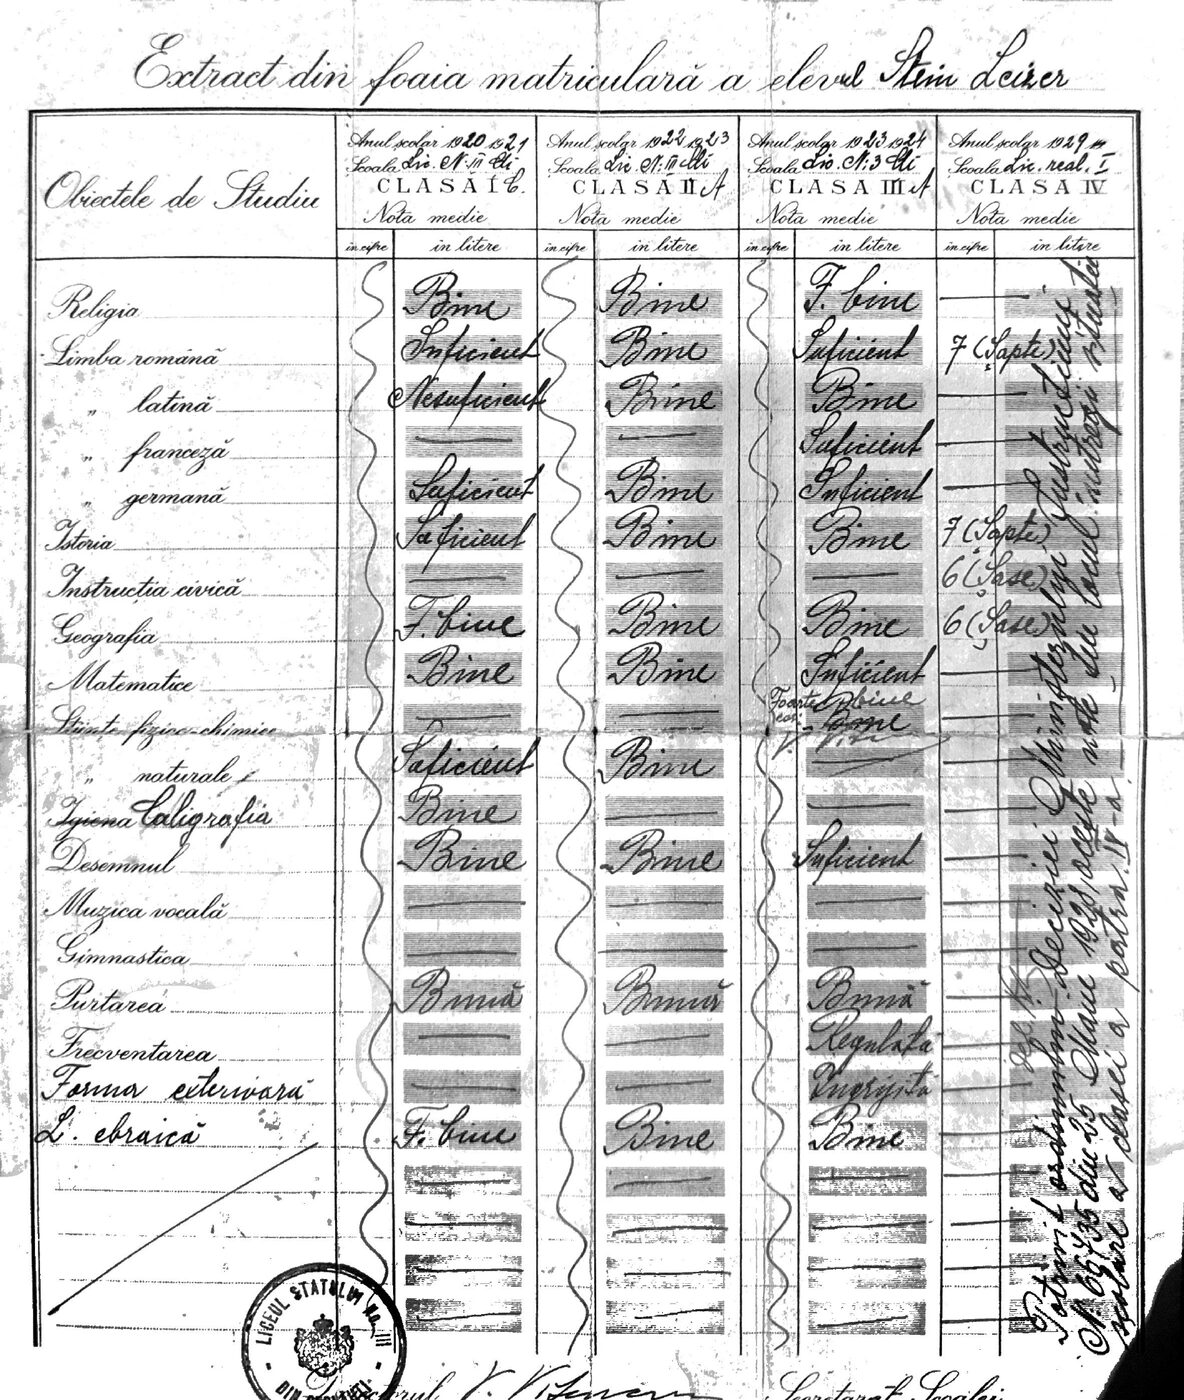 Extract din foaia matriculară a elevul Stein Leizer
Obiectele de Studiu
Anul școlar 1920 1921
Școala Lic. N. III Cli
CLASA I C.
Nota medie
în cifre în litere
Anul școlar 1922 1923
Școala Lic. N. III Cli
CLASA II A
Nota medie
în cifre în litere
Anul școlar 1923 1924
Școala Lic. N. 3 Cli
CLASA III A
Nota medie
în cifre în litere
Anul școlar 1929
Școala Lic. real. I
CLASA IV
Nota medie
în cifre în litere
Religia Bine Bine F. bine —
Limba română Suficient Bine Suficient 7 (Șapte)
„ latină Nesuficient Bine Bine —
„ franceză — — Suficient —
„ germană Suficient Bine Suficient —
Istoria Suficient Bine Bine 7 (Șapte)
Instrucția civică — — — 6 (Șase)
Geografia F. bine Bine Bine 6 (Șase)
Matematice Bine Bine Suficient —
Foarte bine
Științe fizico-chimice — — Bine —
„ naturale Suficient Bine — —
Igiena Caligrafia Bine — — —
Desemnul Bine Bine Suficient —
Muzica vocală — — — —
Gimnastica — — — —
Purtarea Bună Bună Bună —
Frecventarea — — Regulată —
Forma exterioară — — Îngrijită —
L. ebraică F. bine Bine Bine —
Potrivit ordinului Deciziei Ministerului Instrucțiunii
N. 69735 din 25 Maiu 1928, aceste note țin locul întregii situații
școlare a clasei a patra. IV-a.
LICEUL STATULUI No. III
DIN
Directorul V.
Secretarul Școalei